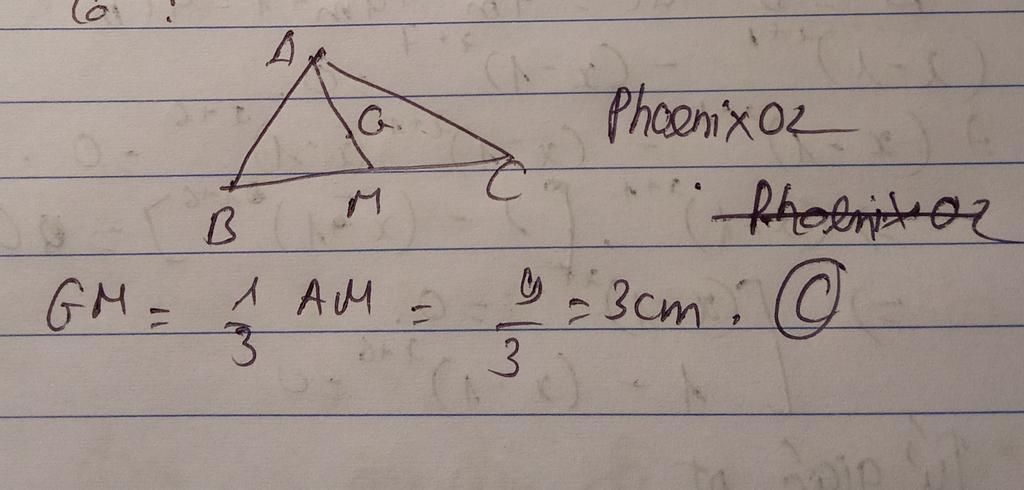 A
G
Phoenix02
B
M
C
Phoenix02
GM = 1/3 AM = 9/3 = 3cm. C